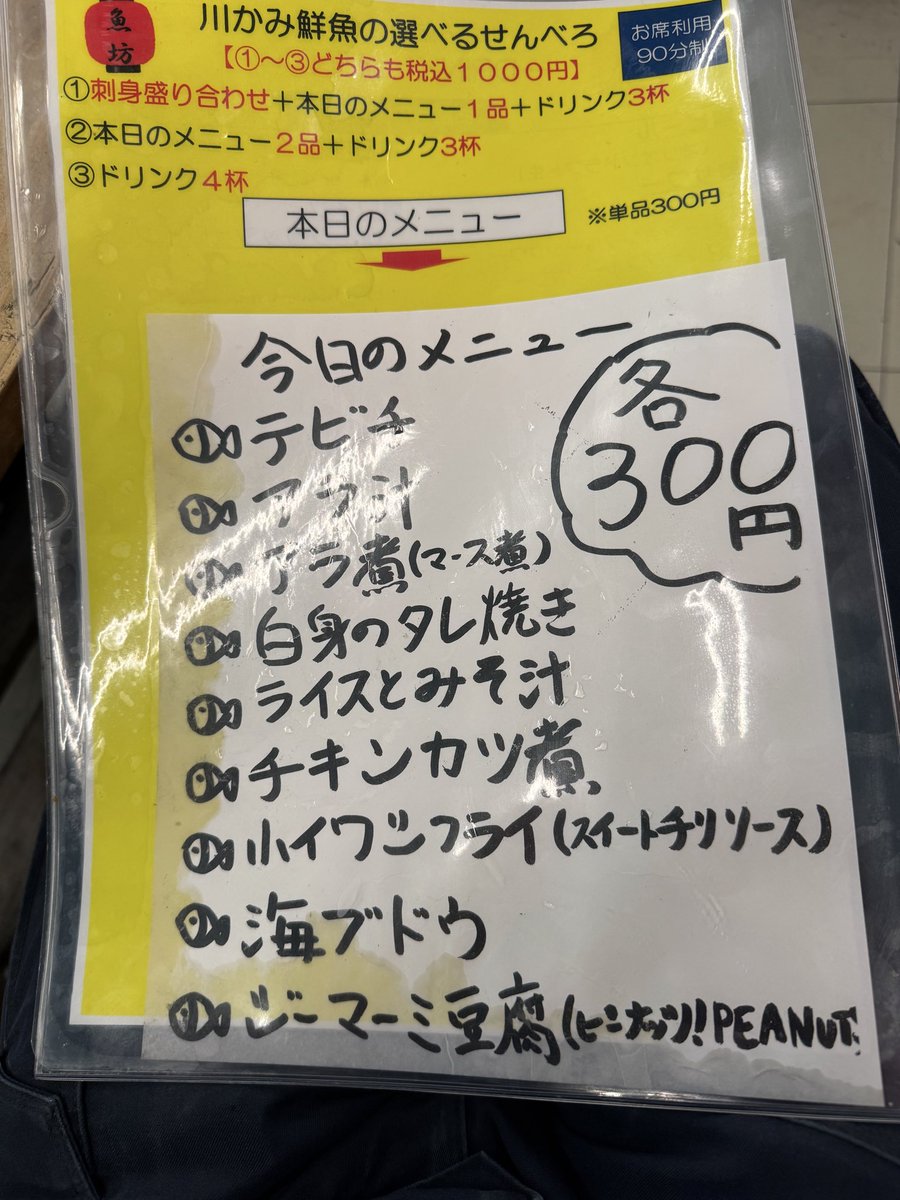 魚坊
川かみ鮮魚の選べるせんべろ
お席利用
90分制
【①～③どちらも税込1000円】
①刺身盛り合わせ＋本日のメニュー1品＋ドリンク3杯
②本日のメニュー2品＋ドリンク3杯
③ドリンク4杯
本日のメニュー
※単品300円
今日のメニュー
各
300
円
テビチ
アラ汁
アラ煮(マース煮)
白身のタレ焼き
ライスとみそ汁
チキンカツ煮
小イワシフライ(スイートチリソース)
海ブドウ
ジーマーミ豆腐(ピーナッツ)!PEANUT